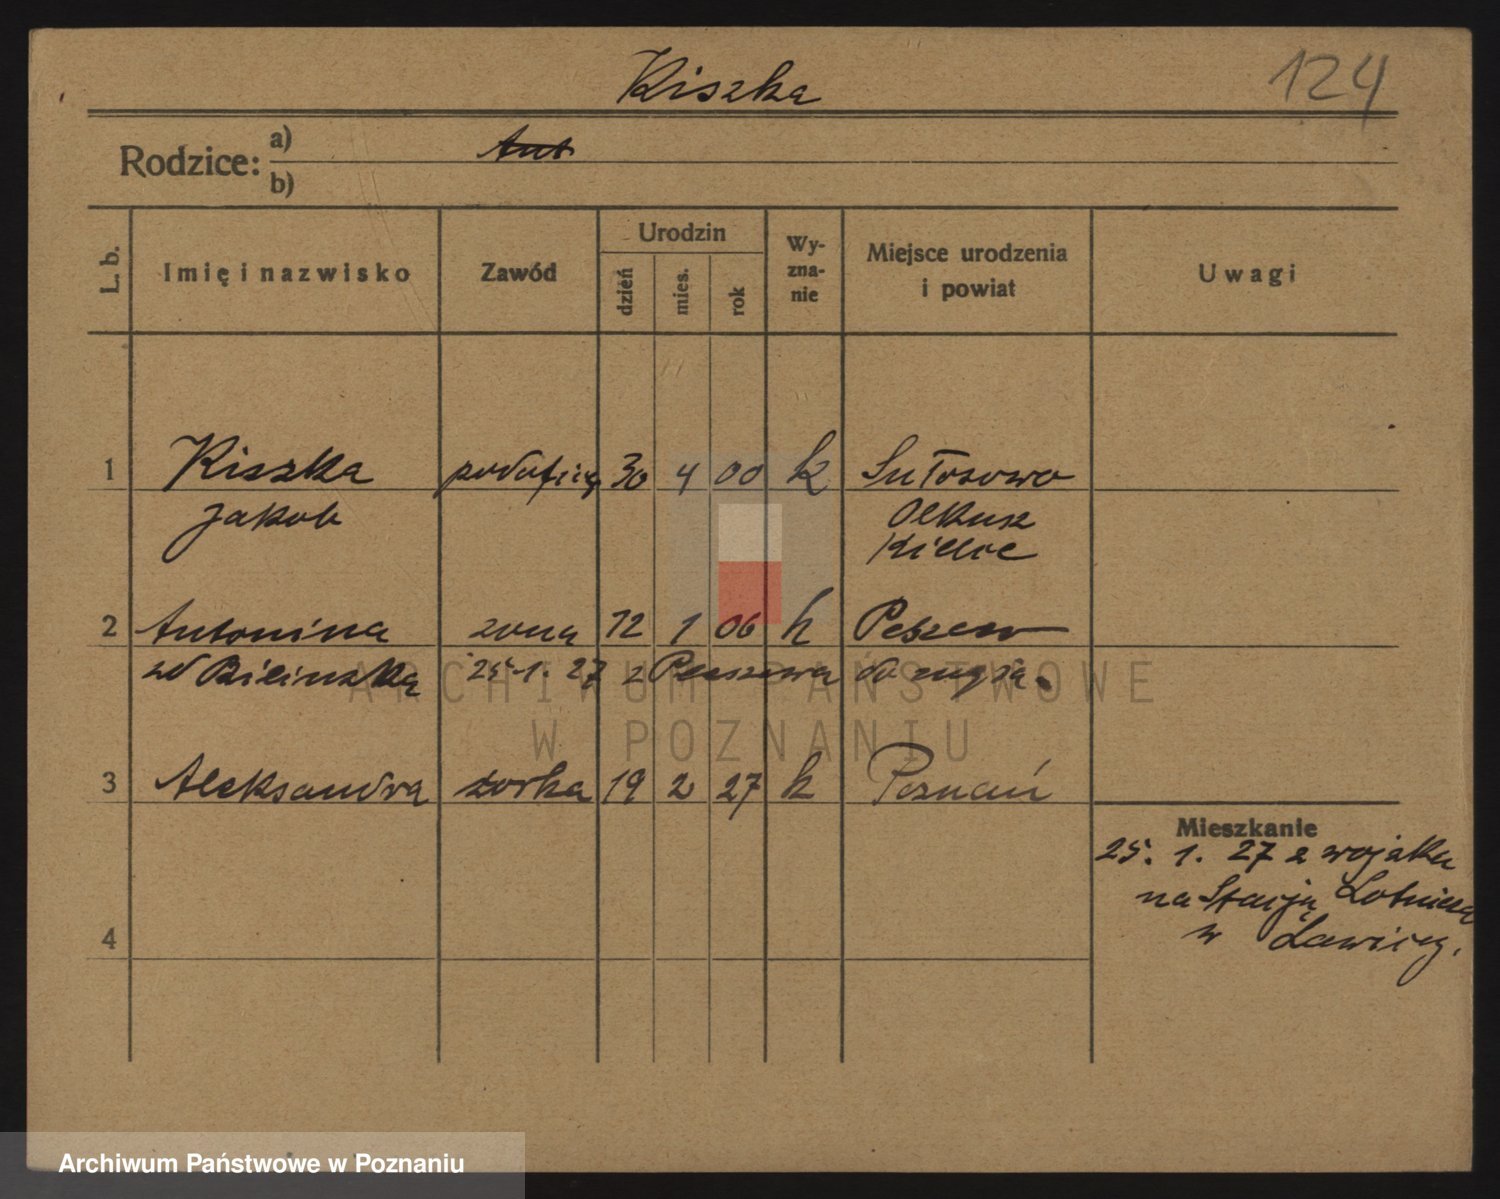 Kiszka
124
Rodzice: a) Ant
b)
L. b. Imię i nazwisko Zawód Urodzin dzień mies. rok Wy-zna-nie Miejsce urodzenia i powiat Uwagi
1 Kiszka podofic 30 4 00 k Sułosowo
Jakob Olkusz
Kielce
2 Antonina zona 12 1 06 k
zd Bilinska 25.1.27 z Pleszewa do męża.
3 Aleksandra córka 19 2 27 k Poznań
Mieszkanie
25. 1. 27 z wojska
na Stację Lotniczą
w Ławicy.
4
ARCHIWUM PAŃSTWOWE
W POZNANIU
Archiwum Państwowe w Poznaniu